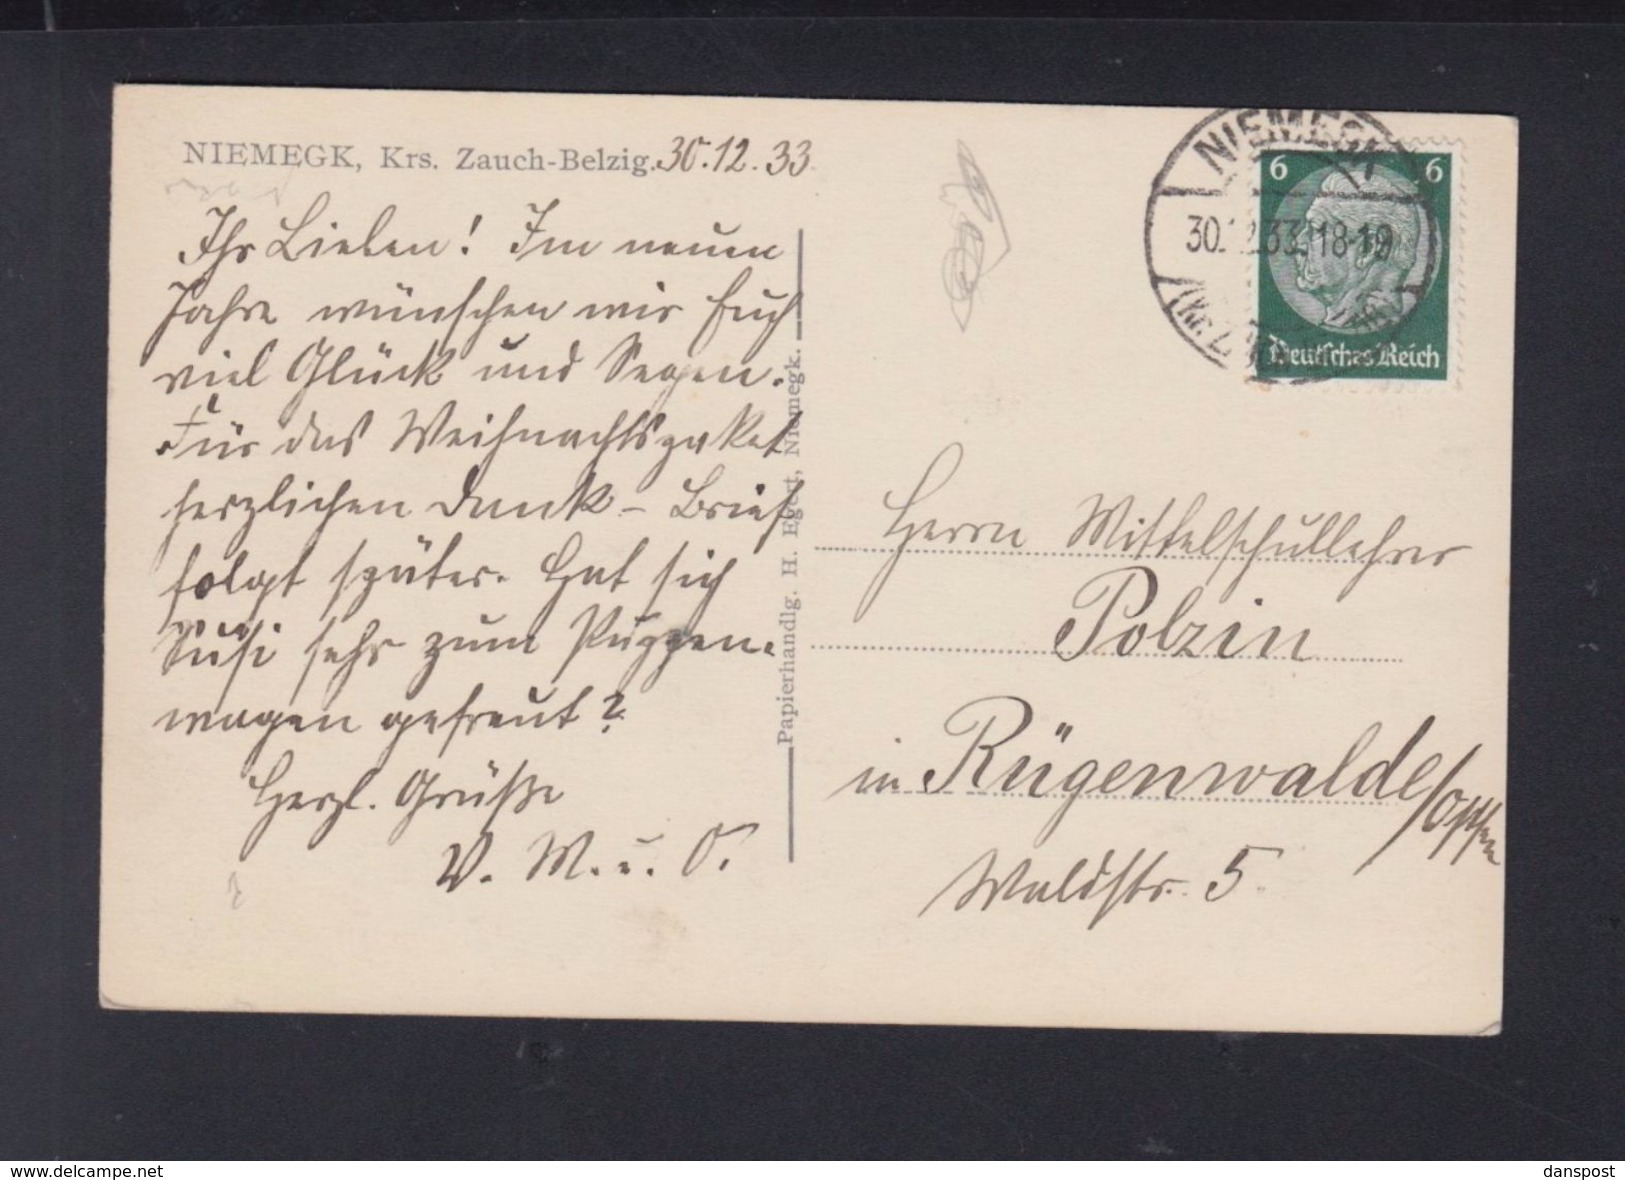 NIEMEGK, Krs. Zauch-Belzig. 30.12.33.
Ihr Lieben! Im neuen
Jahre wünschen wir Euch
viel Glück und Segen.
Für das Weihnachtspaket
herzlichen Dank – Brief
folgt später. Hat sich
Susi sehr zum Puppen-
wagen gefreut?
Herzl. Grüße
V. M. u. O.
Papierhandlg. H. Egert, Niemegk.
NIEMEGK
30.12.33. 18-19
6 6
Deutsches Reich
Herrn Mittelschullehrer
Polzin
in Rügenwalde/
Waldstr. 5
www.delcampe.net
danspost